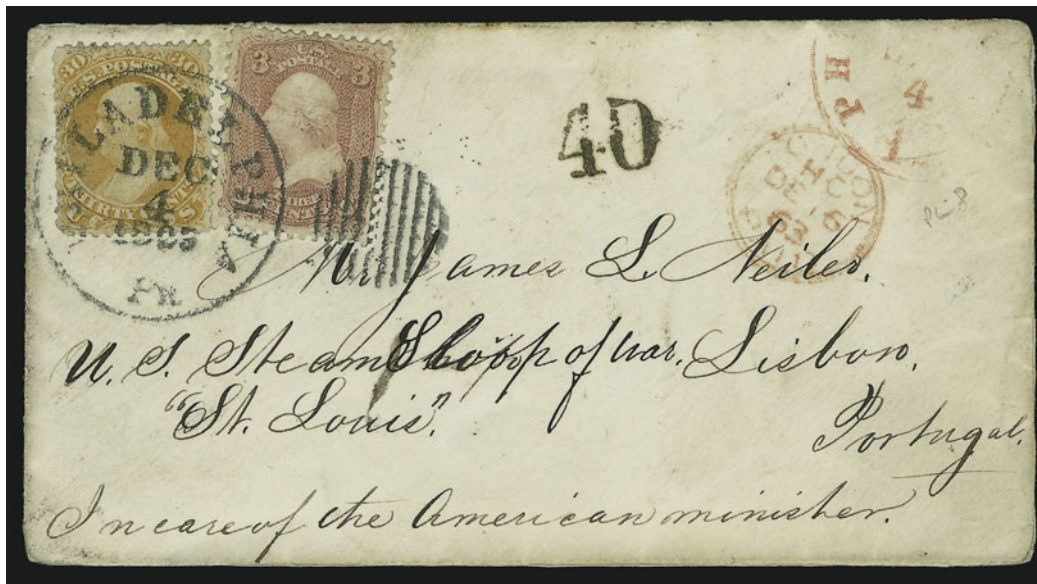 30 30
U.S. POSTAGE
THIRTY CENTS
3 U.S. POSTAGE 3
PHILADELPHIA
DEC
4
1863
Pa.
40
PH
4
LONDON
PAID
63
PC 8
Mr. James L. Neiler.
U. S. Steam Sloop of war, Lisbon,
"St. Louis".
Portugal.
In care of the American minister.